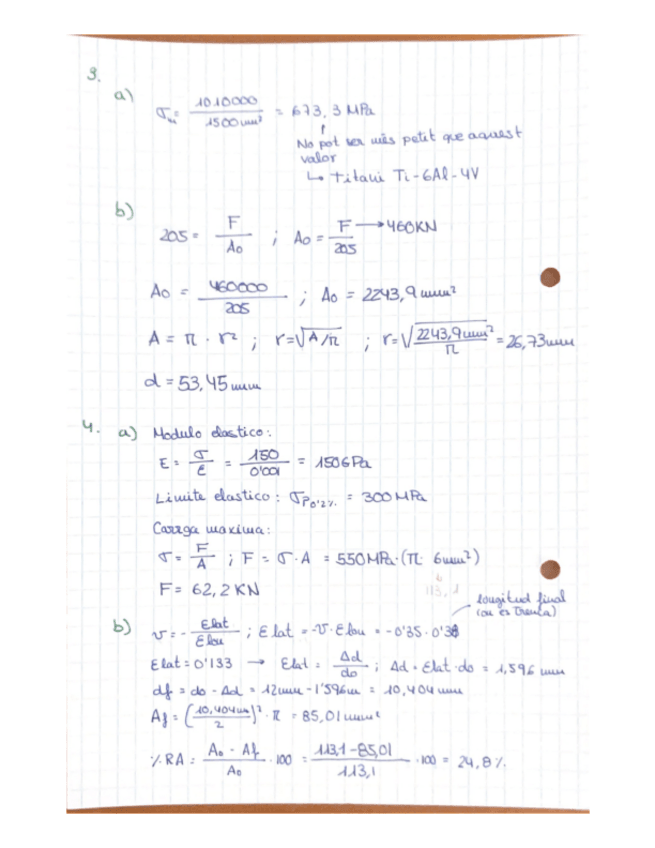 3.
a) σₘ = 1010000 / 1500 mm² = 673,3 MPa
No pot ser més petit que aquest
valor
↳ Titani Ti-6Al-4V
b) 205 = F / A₀ ; A₀ = F / 205 → 460KN
A₀ = 460000 / 205 ; A₀ = 2243,9 mm²
A = π · r² ; r = √A/π ; r = √(2243,9 mm² / π) = 26,73 mm
d = 53,45 mm
4. a) Modulo elastico:
E = σ / ε = 150 / 0'001 = 150GPa
Limite elastico: σP₀'₂% = 300 MPa
Carrga maxima:
σ = F / A ; F = σ · A = 550MPa · (π · 6mm²)
113,1
F = 62,2 KN
longitud final
(on es trenca)
b) ν = - Elat / Elon ; Elat = -ν · Elon = -0'35 · 0'38
Elat = 0'133 → Elat = Δd / do ; Δd = Elat · do = 1,596 mm
df = do - Δd = 12mm - 1'596m = 10,404 mm
Af = (10,404mm / 2)² · π = 85,01 mm²
% RA = A₀ - Af / A₀ · 100 = 113,1 - 85,01 / 113,1 · 100 = 24,8%